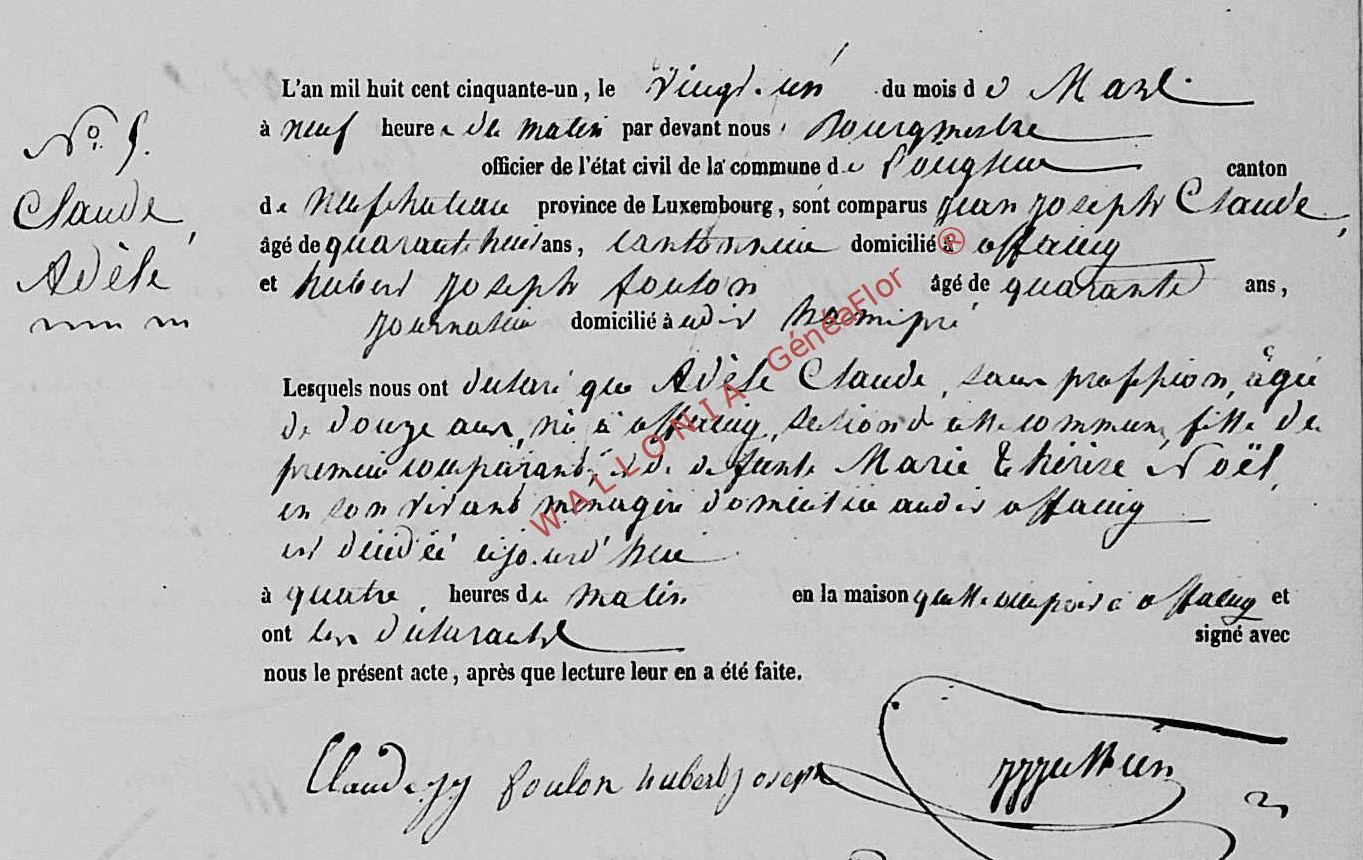 L'an mil huit cent cinquante-un, le vingt-un du mois de Mars
à neuf heures du matin par devant nous Bourgmestre
N° 5.
officier de l'état civil de la commune de Longlier canton
Claude,
de Neufchateau province de Luxembourg, sont comparus Jean Joseph Claude,
âgé de quarante huit ans, cantonnier domicilié à offaing
Adèle
et hubert Joseph foulon âgé de quarante ans,
journalier domicilié à udit hamipré
Lesquels nous ont déclaré que Adèle Claude, sans profession, âgée
de douze ans, né à offaing, section de cette commune, fille de
premier comparant, et de defunte Marie Thérèse Noël,
en son vivant ménagère domiciliée audit offaing
est décédée aujourd'hui
à quatre heures du matin en la maison qu'elle occupait à offaing et
ont les déclarants signé avec
nous le présent acte, après que lecture leur en a été faite.
Claude JJ foulon hubert joseph
WALLONIA GénéaFlor ®